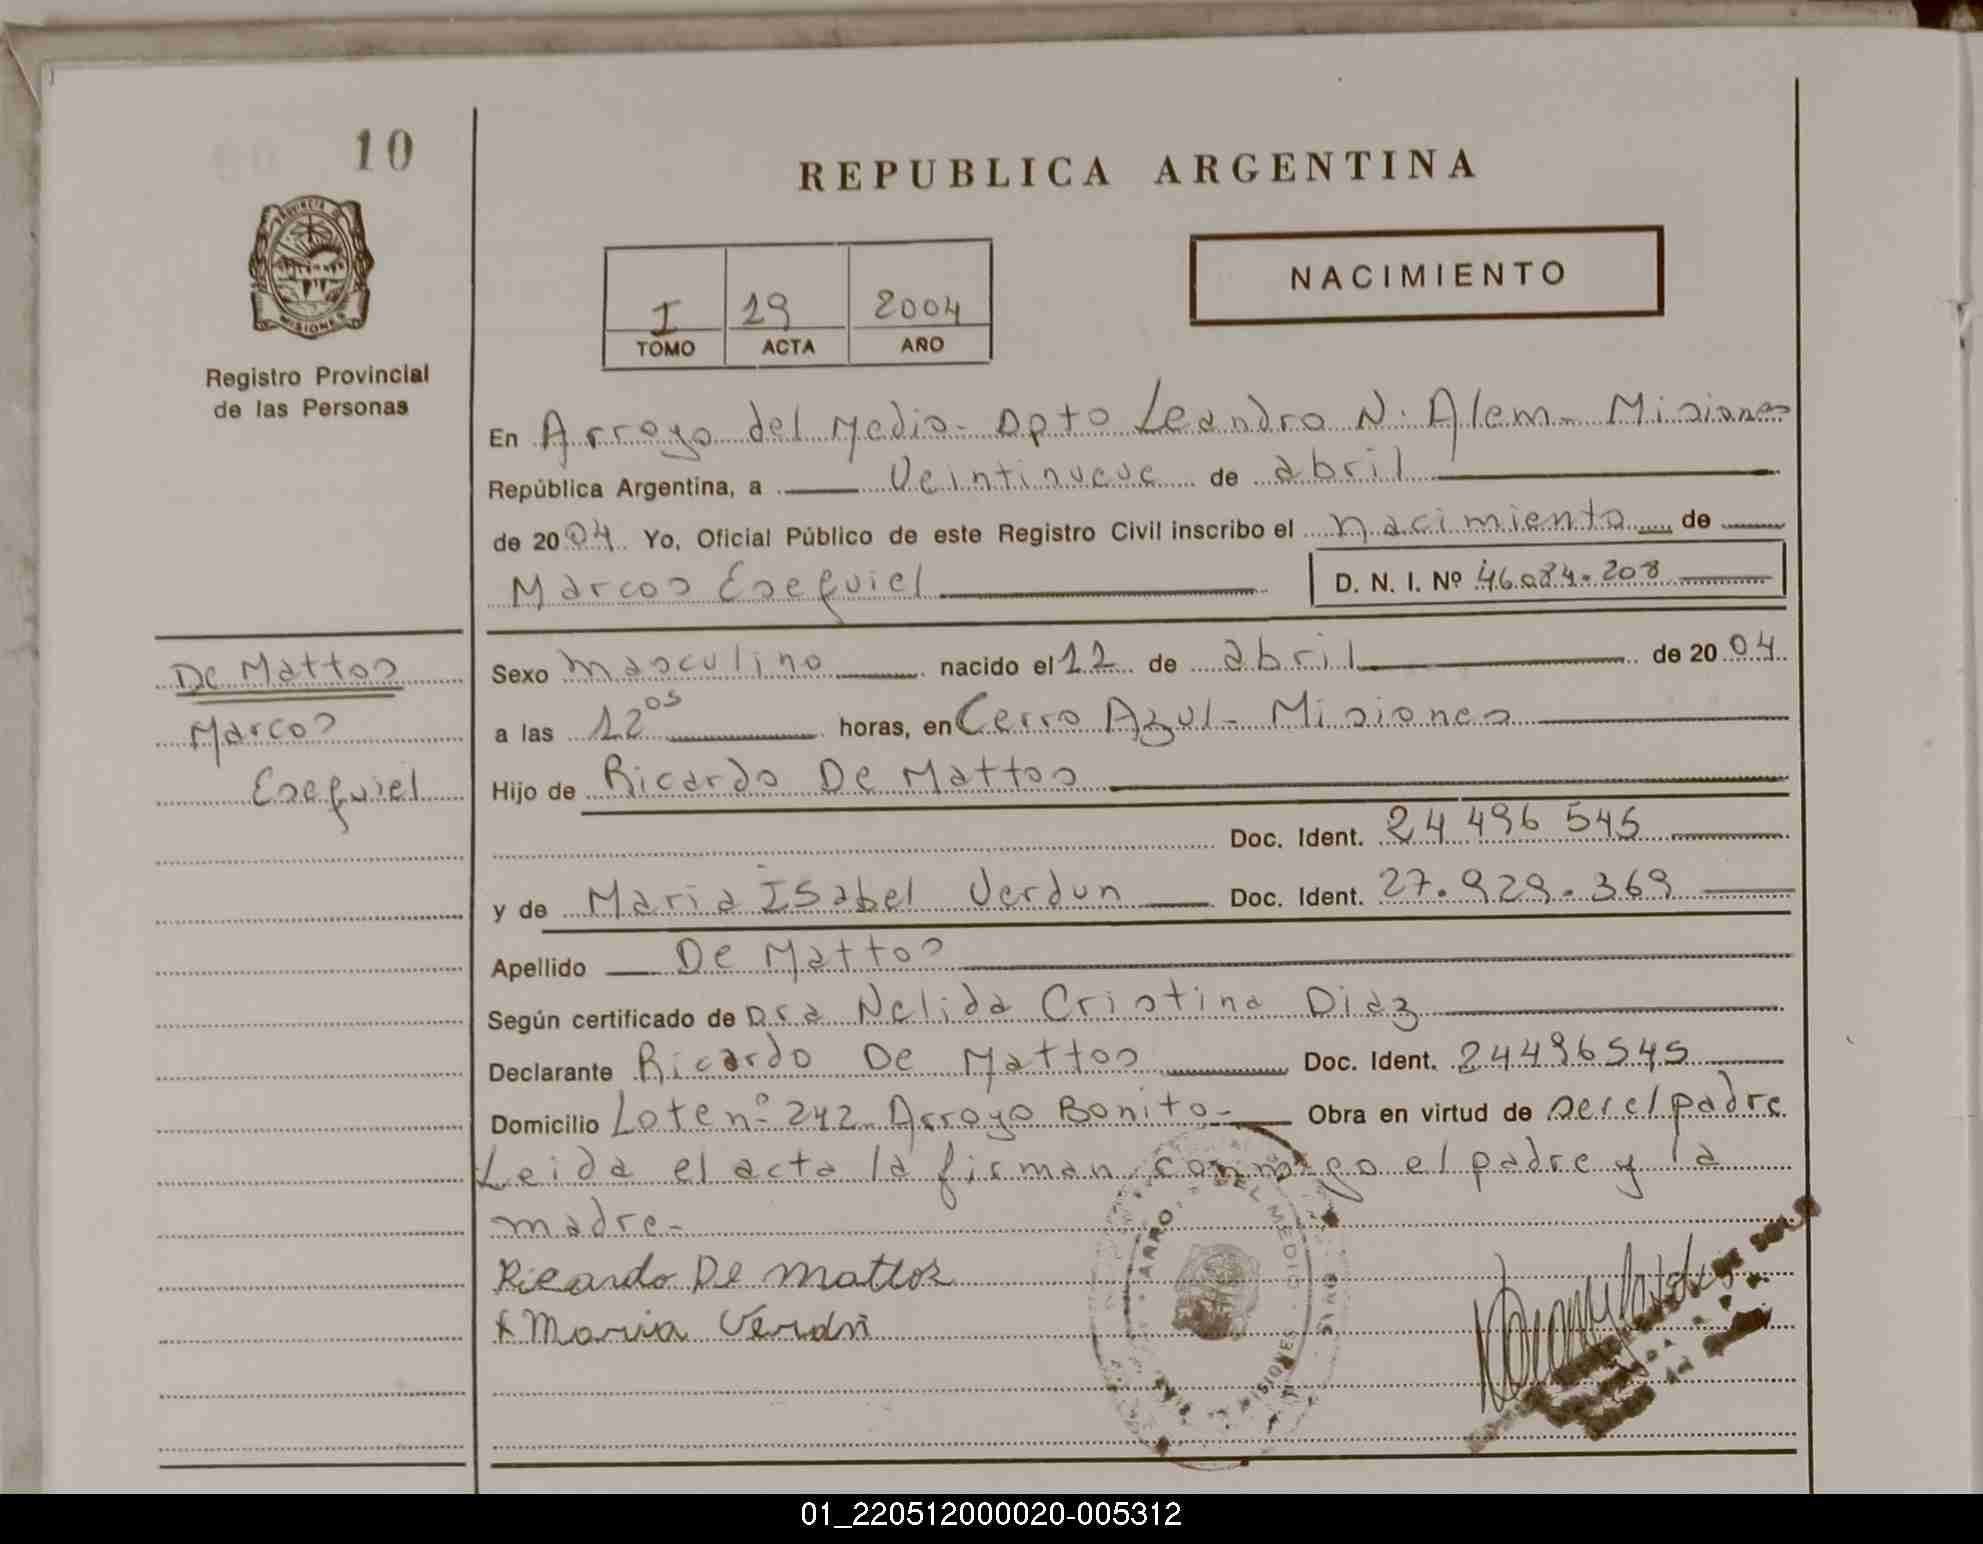 10
REPUBLICA ARGENTINA
PROVINCIA DE
MISIONES
Registro Provincial
de las Personas
I 19 2004
TOMO ACTA AÑO
NACIMIENTO
En Arroyo del Medio - Dpto Leandro N. Alem - Misiones
República Argentina, a Veintinueve de abril
de 2004 Yo, Oficial Público de este Registro Civil inscribo el nacimiento de
Marcos Esequiel D. N. I. Nº 46.084.208
De Mattos
Marcos
Esequiel
Sexo masculino nacido el 12 de abril de 2004
a las 12 05 horas, en Cerro Azul - Misiones
Hijo de Ricardo De Mattos
Doc. Ident. 24 496 545
y de Maria Isabel Verdun Doc. Ident. 27.929.369
Apellido De Mattos
Según certificado de Dra Nelida Cristina Diaz
Declarante Ricardo De Mattos Doc. Ident. 24496545
Domicilio Lote nº 242 Arroyo Bonito - Obra en virtud de ser el padre
Leida el acta la firman conmigo el padre y la
madre -
Ricardo De Mattos
x Maria Verdn
ARRO DEL MEDIO
MISIONES
01_220512000020-005312